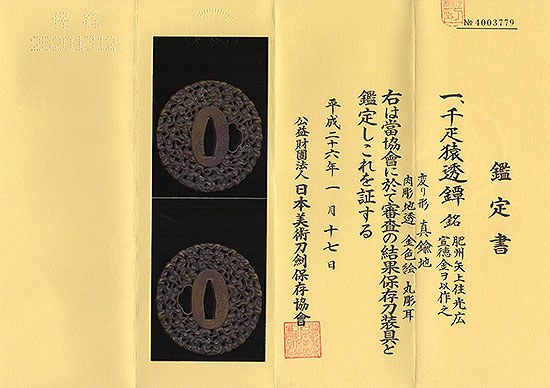 № 4003779
鑑定書
一、千疋猿透鐔 銘 肥州矢上住光広
宣徳金ヲ以作之
変り形 真鍮地
肉彫地透 金色絵 丸彫耳
右は當協會に於て審査の結果保存刀装具と
鑑定しこれを証する
平成二十六年一月十七日
公益財團法人 日本美術刀剣保存協會